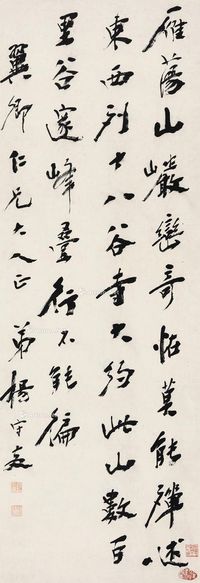 雁蕩山巖巒奇怪莫能殫述
東西列十八谷寺大約此山數百
里谷邃峰疊行不能徧
翼卿仁兄大人正 弟楊守敬